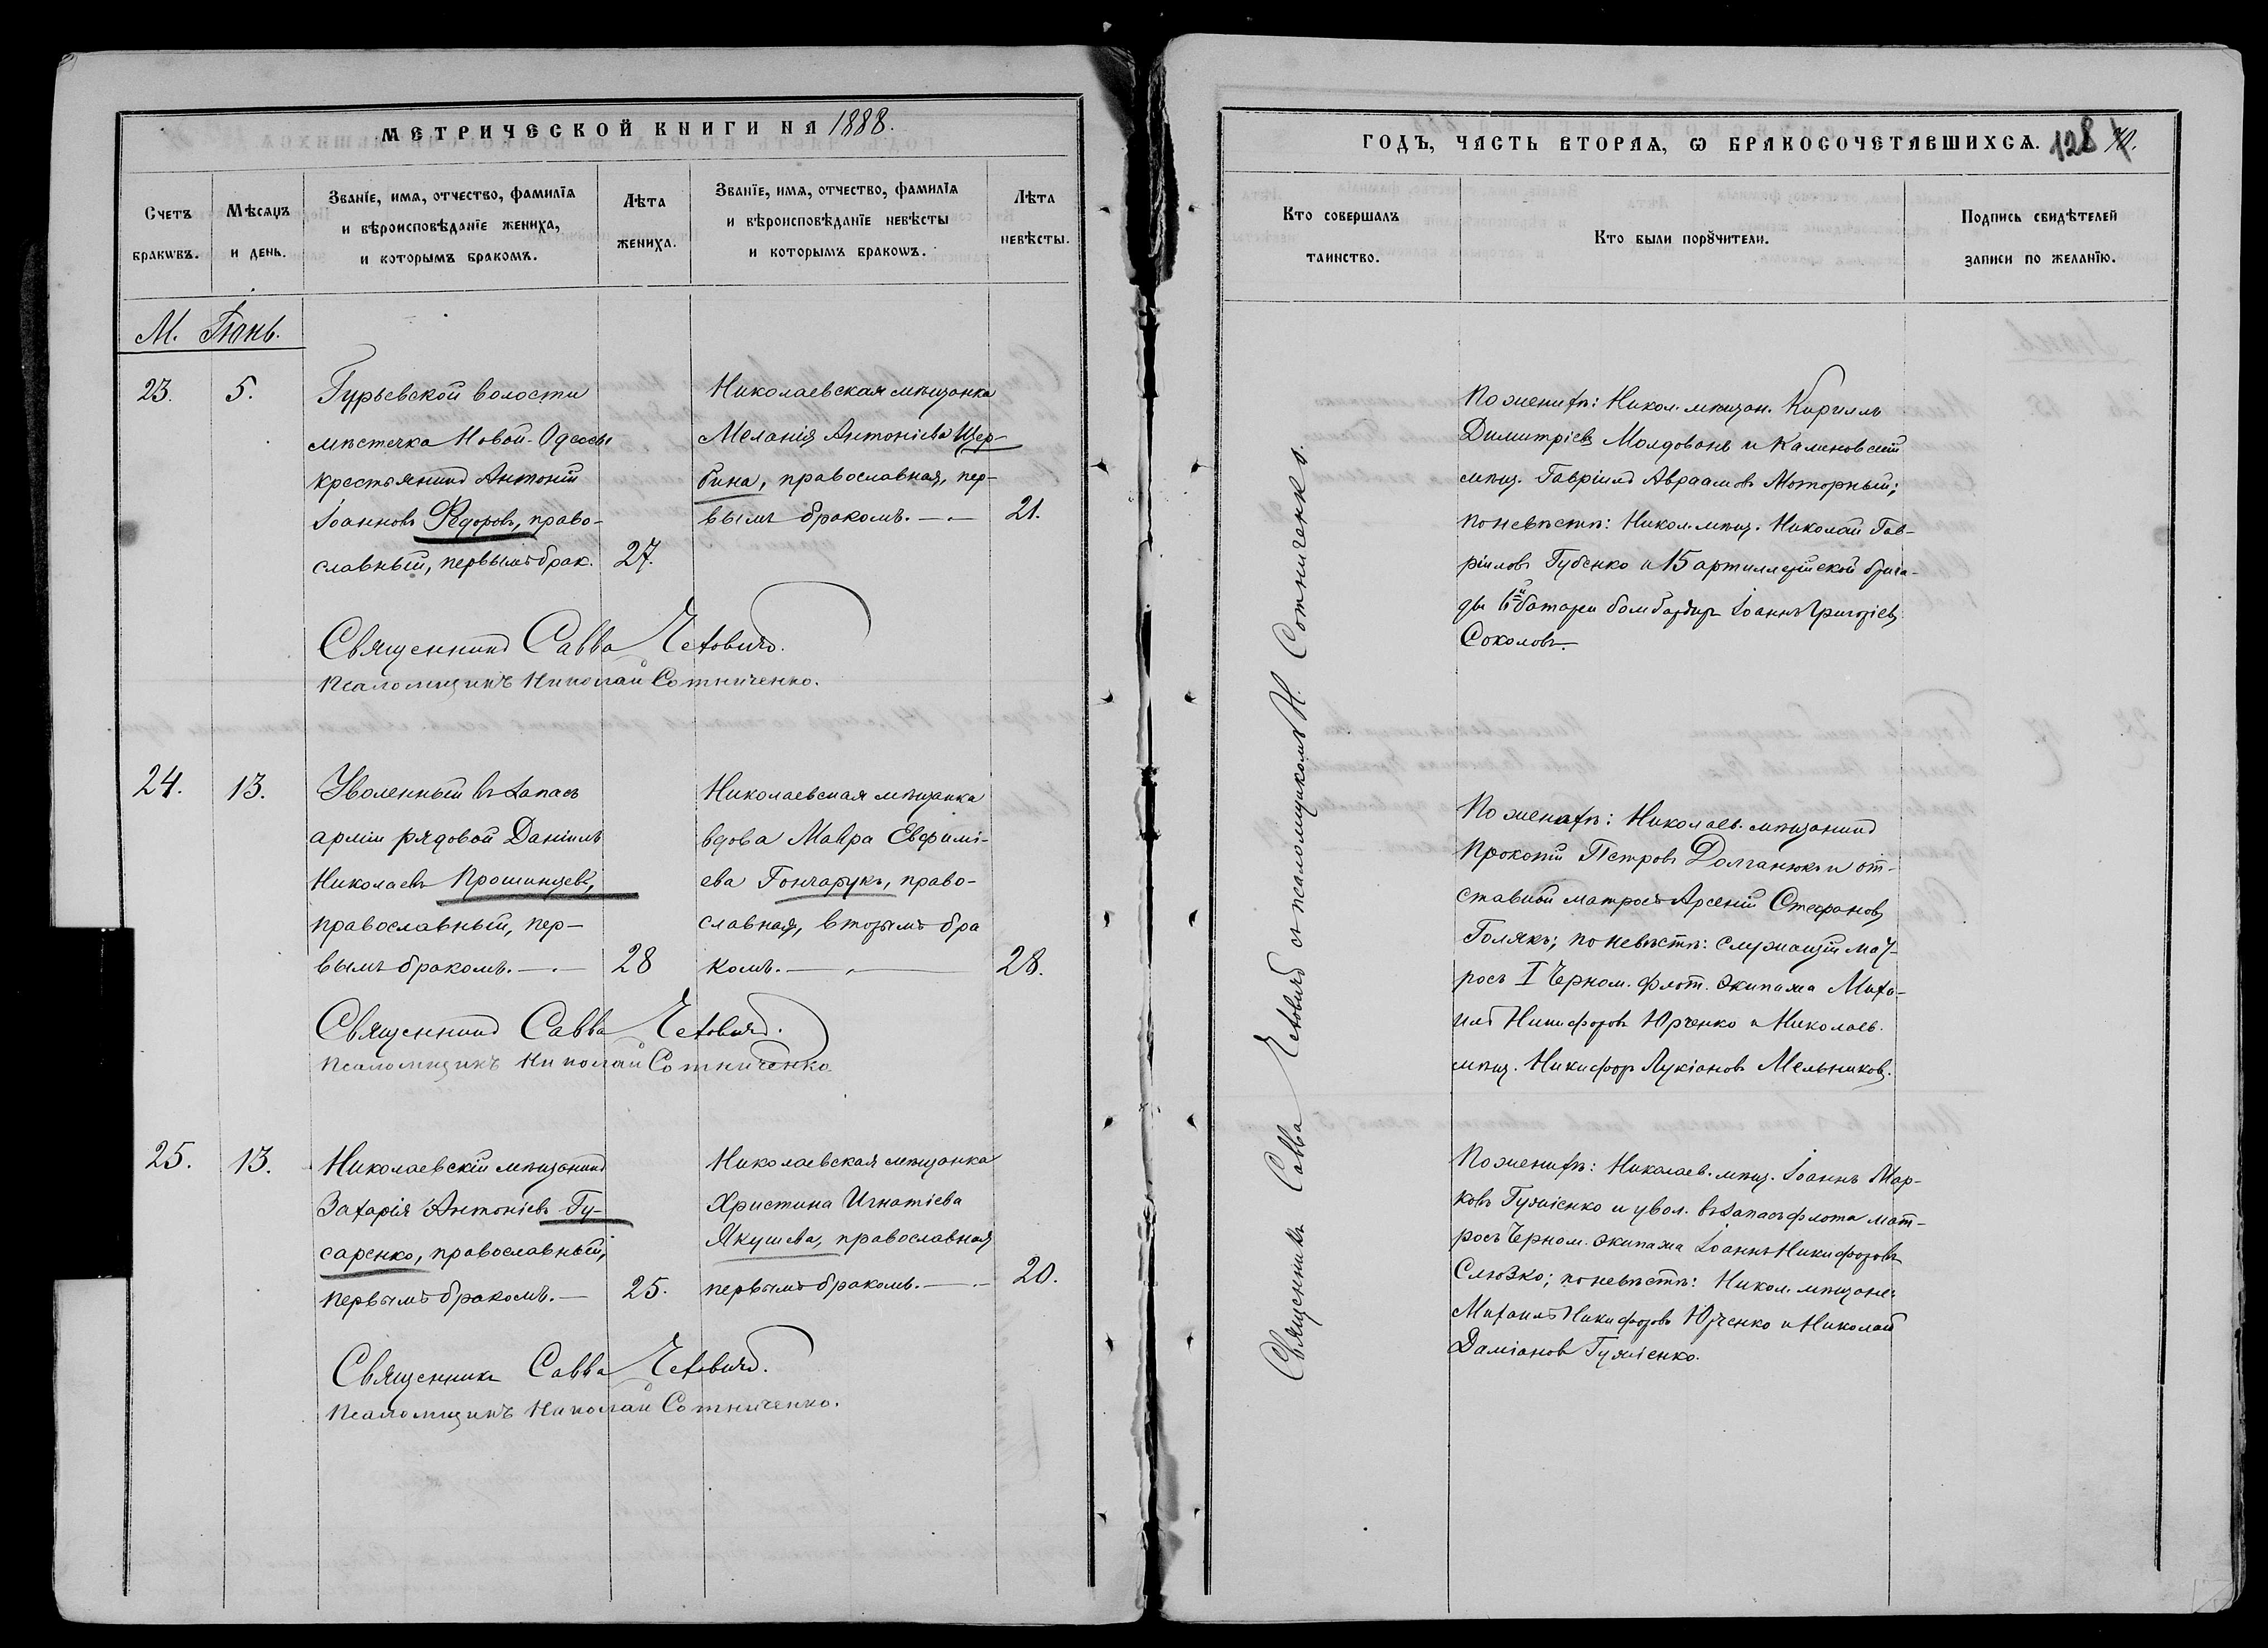 МЕТРИЧЕСКОЙ КНИГИ НА 1888.
Счетъ браковъ.
Мѣсяцъ и день.
Званїе, имя, отчество, фамилїя
и вѣроисповѣданїе жениха,
и которымъ бракомъ.
Лѣта
жениха.
Званїе, имя, отчество, фамилїя
и вѣроисповѣданїе невѣсты
и которымъ бракомъ.
Лѣта
невѣсты.
М. Іюнь.
23.
5.
Гурьевской волости
мѣстечка Новой-Одессы
крестьянинъ Антоній
Іоанновъ Ѳедоровъ, право-
славный, первымъ брак.
27.
Николаевская мѣщанка
Меланія Антоніева Щер-
бина, православная, пер-
вымъ бракомъ. —.—
21.
Священникъ Савва
Псаломщикъ Николай Сотниченко.
24.
13.
Уволенный въ запасъ
арміи рядовой Даніилъ
Николаевъ Прошинцевъ,
православный, пер-
вымъ бракомъ. —.—
28
Николаевская мѣщанка
вдова Мавра Евфимі-
ева Гончарукъ, право-
славная, вторымъ бра
комъ. —.—
28.
Священникъ Савва
Псаломщикъ Николай Сотниченко.
25.
13.
Николаевскій мѣщанинъ
Захарія Антоніевъ Гу-
саренко, православный,
первымъ бракомъ. —
25.
Николаевская мѣщанка
Христина Игнатіева
Якушева, православная
первымъ бракомъ. —.—
20.
Священникъ Савва
Псаломщикъ Николай Сотниченко.
ГОДЪ, ЧАСТЬ ВТОРАЯ, Ѡ БРАКОСОЧЕТАВШИХСЯ. 128
Кто совершалъ
таинство.
Кто были порꙋчители.
Подпись свидѣтелей
записи по желанїю.
Священникъ Савва съ псаломщикомъ Н. Сотниченко.
По женихѣ: Никол. мѣщан. Кириллъ
Димитріевъ Молдованъ и Калиновскій
мѣщ. Гавріилъ Авраамовъ Моторный;
по невѣстѣ: Никол. мѣщ. Николай Гав-
ріиловъ Губенко и 15 артиллерійской брига-
ды 6й батареи бомбардиръ Іоаннъ Григоріевъ
Соколовъ.
По женихѣ: Николаев. мѣщанинъ
Прокопій Петровъ Долганюкъ и от-
ставной матросъ Арсеній Стефановъ
Голякъ; по невѣстѣ: служащій мат-
росъ I Черном. флот. экипажа Миха-
илъ Никифоровъ Юрченко и Николаев.
мѣщ. Никифоръ Лукіановъ Мельниковъ.
По женихѣ: Николаев. мѣщ. Іоаннъ Мар-
ковъ и увол. въ запасъ флота мат-
росъ Черном. экипажа Іоаннъ Никифоровъ
Слюзко; по невѣстѣ: Никол. мѣщане:
Михаилъ Никифоровъ Юрченко и Николай
Даміановъ